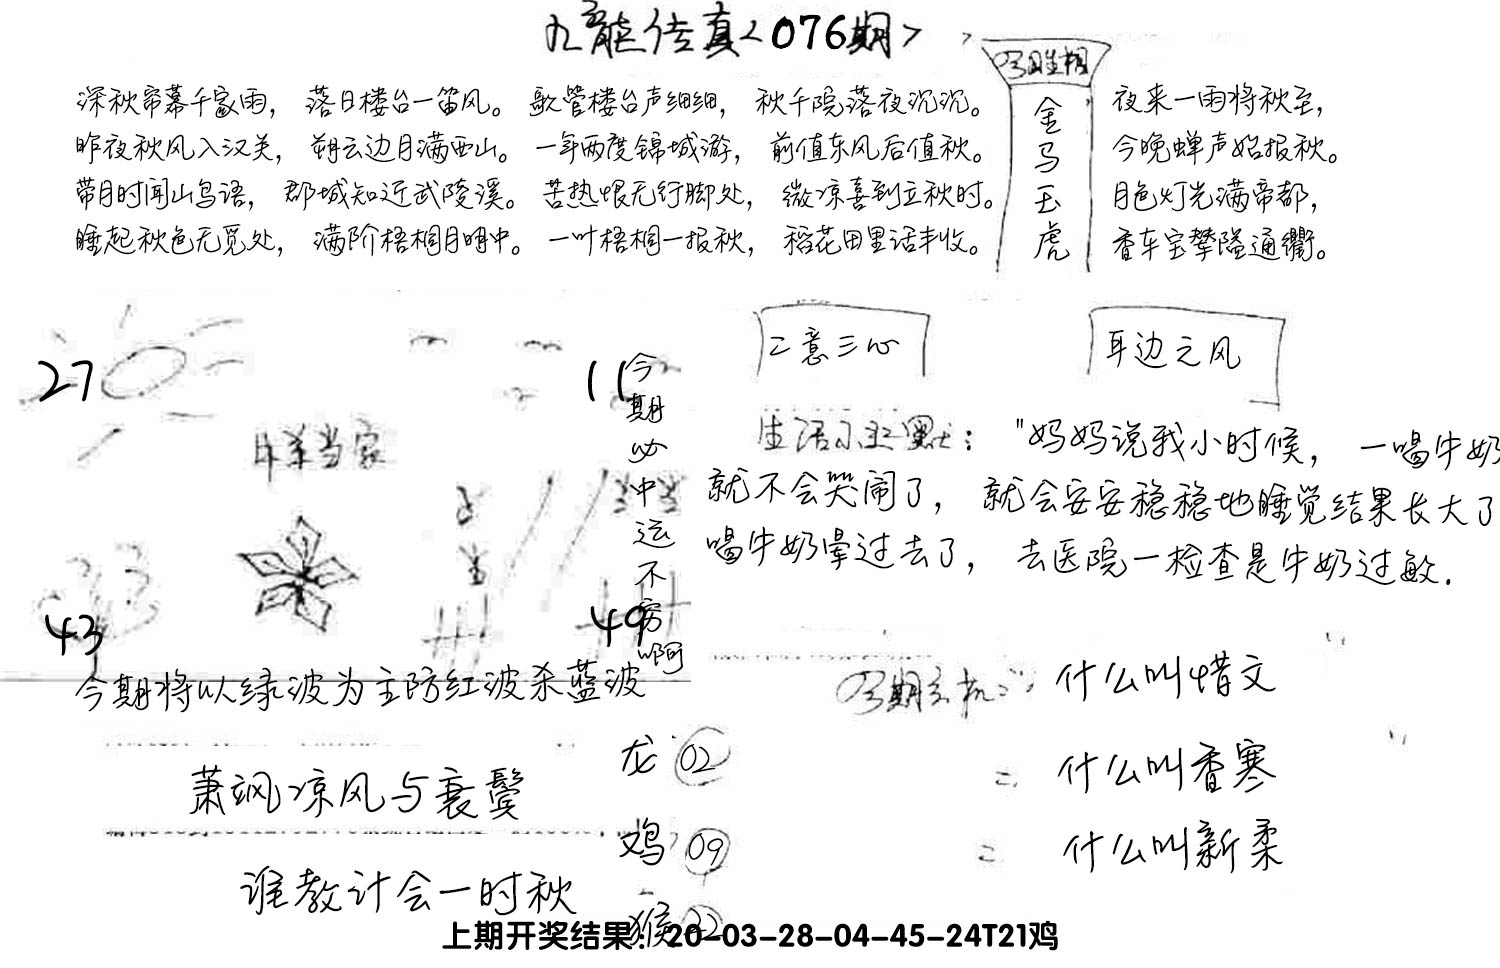 九龙传真<076期>
深秋帘幕千家雨，落日楼台一笛风。歌管楼台声细细，秋千院落夜沉沉。
昨夜秋风入汉关，朔云边月满西山。一年两度锦城游，前值东风后值秋。
带月时闻山鸟语，郡城知近武陵溪。苦热恨无行脚处，微凉喜到立秋时。
睡起秋色无觅处，满阶梧桐月明中。一叶梧桐一报秋，稻花田里话丰收。
今期生相
金马玉虎
夜来一雨将秋至，
今晚蝉声始报秋。
月色灯光满帝都，
香车宝辇隘通衢。
27
11
43
49
今期必中运不穷啊
二意三心
耳边之风
生活小幽默："妈妈说我小时候，一喝牛奶
就不会哭闹了，就会安安稳稳地睡觉结果长大了
喝牛奶晕过去了，去医院一检查是牛奶过敏.
今期将以绿波为主防红波杀蓝波
今期玄机
什么叫惜文
什么叫香寒
什么叫新柔
萧飒凉风与衰鬓
谁教计会一时秋
龙 02
鸡 09
猴 22
上期开奖结果：20-03-28-04-45-24T21鸡